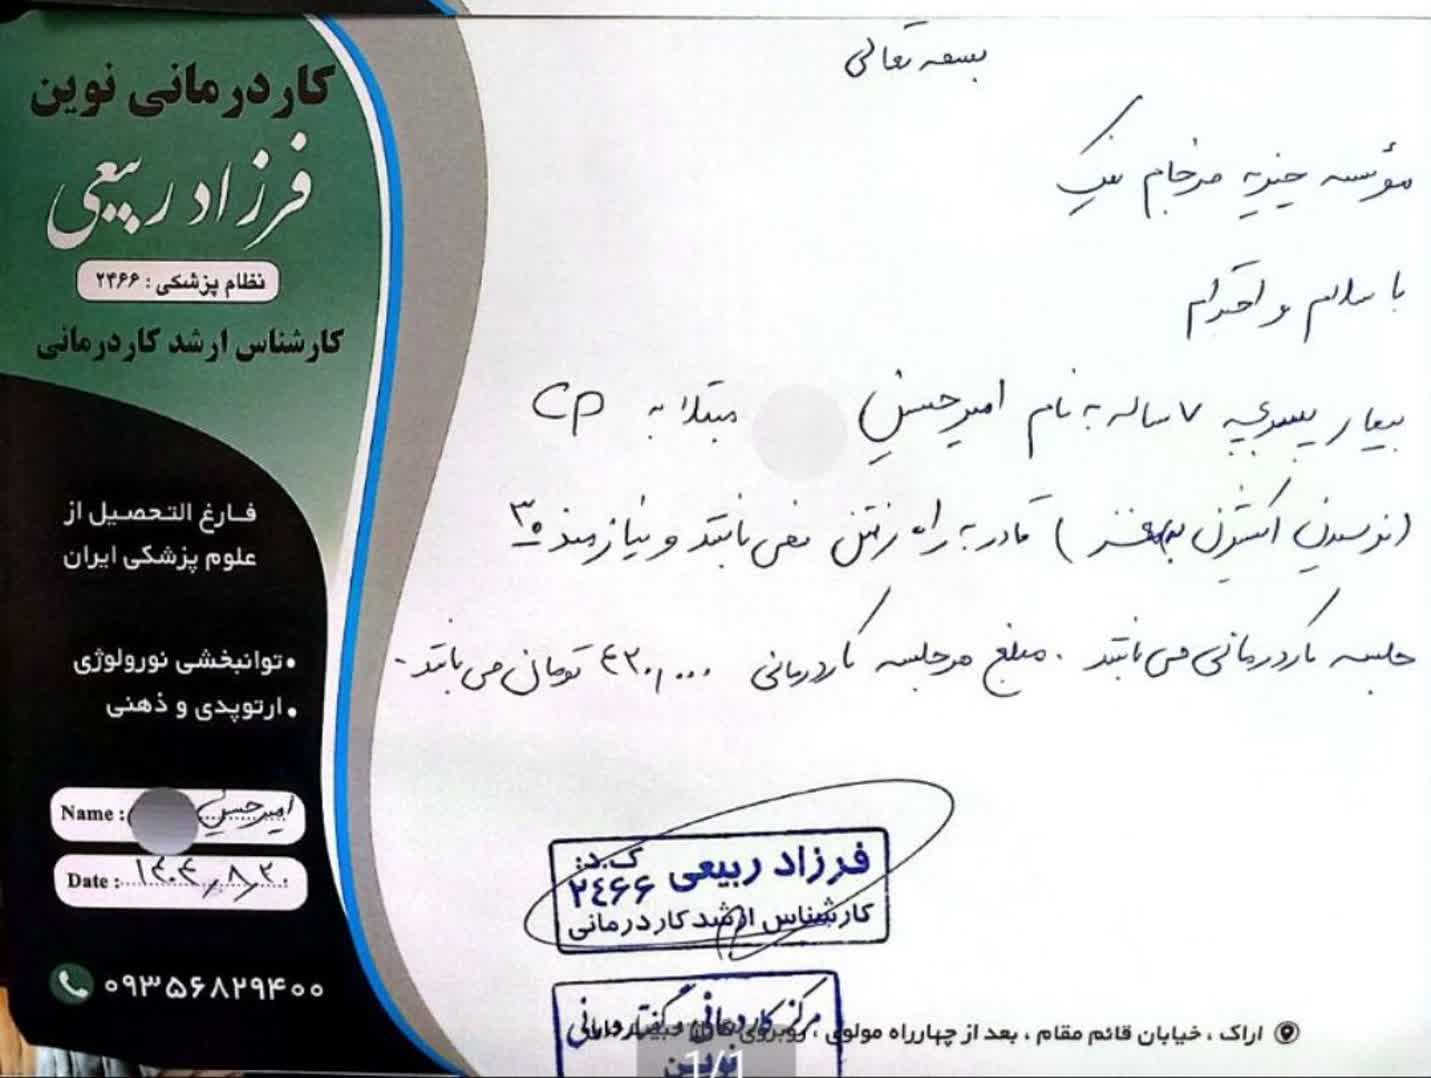 کاردرمانی نوین
فرزاد ربیعی
نظام پزشکی : ۲۴۶۶
کارشناس ارشد کاردرمانی
فارغ التحصیل از
علوم پزشکی ایران
•توانبخشی نورولوژی
•ارتوپدی و ذهنی
Name : امیرحسین
Date : ۱۴۰۴/۸/۲۰
۰۹۳۵۶۸۲۹۴۰۰
بسمه تعالی
مؤسسه خیریه فرجام نیک
با سلام و احترام
بیمار پسری ۷ ساله به نام امیرحسین مبتلا به CP
(نرسیدن اکسیژن به مغز) قادر به راه رفتن نمی باشد و نیازمند ۳۰
جلسه کاردرمانی می باشد . مبلغ هر جلسه کاردرمانی ۴۳۰,۰۰۰ تومان می باشد .
فرزاد ربیعی ک.د: ۲۴۶۶
کارشناس ارشد کاردرمانی
مرکز کاردرمانی و گفتاردرمانی
نوین
اراک ، خیابان قائم مقام ، بعد از چهارراه مولوی ، روبروی
1/1